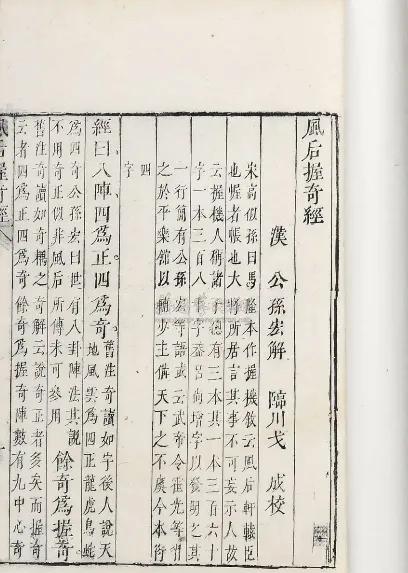 風后握奇經
漢 公孫宏解 臨川戈 成校
宋高似孫曰馬隆本作握機敘云風后軒轅臣
也握者帳也大將所居言其事不可妄示人故
云握機人稱諸 總有三本其一本三百六十
字一本三百八十字蓋呂尚增字以發明之其
一行簡有公孫宏等語或云武帝令霍光等習
之於平樂館以輔少主備天下之不虞今本衍
四
字
經曰八陣四為正四為奇
舊注奇讀如字後人說天
地風雲為四正龍虎鳥蛇
為四奇公孫宏曰世有八卦陣法其說
不用奇正似非風后所傳未可參用
餘奇為握奇
舊注奇讀如奇耦之奇解云說奇正者多矣而握奇
云者四為正四為奇餘奇為握奇陣數有九中心奇
風后握奇經